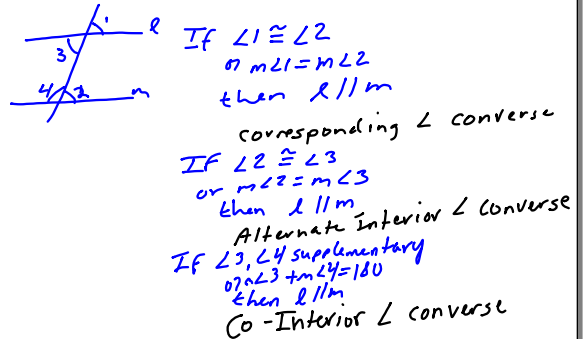 1
ℓ
3
4 2
m
If ∠1 ≅ ∠2
or m∠1 = m∠2
then ℓ // m
corresponding ∠ converse
If ∠2 ≅ ∠3
or m∠2 = m∠3
then ℓ // m
Alternate Interior ∠ converse
If ∠3, ∠4 supplementary
or m∠3 + m∠4 = 180
then ℓ // m
Co-Interior ∠ converse